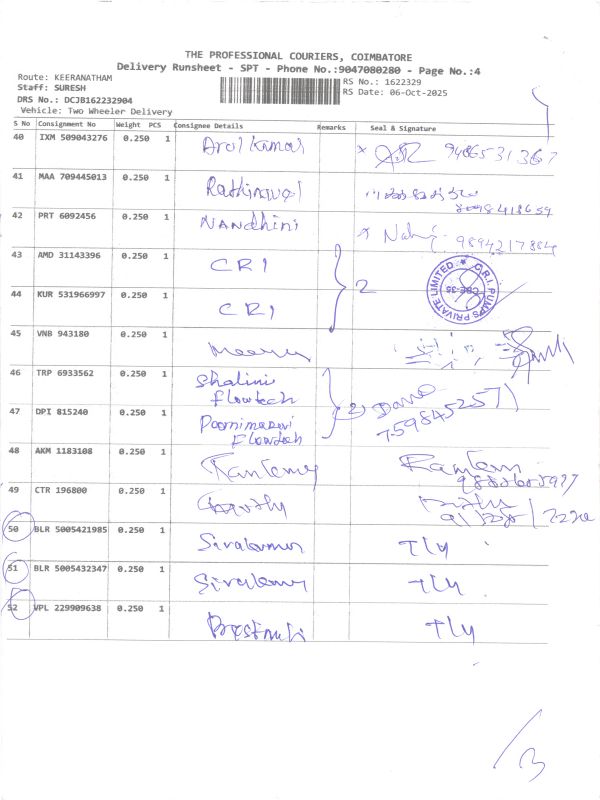 THE PROFESSIONAL COURIERS, COIMBATORE
Delivery Runsheet - SPT - Phone No.:9047080280 - Page No.:4
Route: KEERANATHAM
RS No.: 1622329
Staff: SURESH
RS Date: 06-Oct-2025
DRS No.: DCJB162232904
Vehicle: Two Wheeler Delivery
S No Consignment No Weight PCS Consignee Details Remarks Seal & Signature
40 IXM 509043276 0.250 1 Arul Kumar x
41 MAA 709445013 0.250 1 8098418659
42 PRT 6092456 0.250 1 NANdhini x 9894217884
43 AMD 31143396 0.250 1 CRI 2
C.R.I. PUMPS PRIVATE LIMITED. CBE-35
44 KUR 531966997 0.250 1 CRI
45 VNB 943180 0.250 1
46 TRP 6933562 0.250 1 Shalini
Flowtech 2
47 DPI 815240 0.250 1
Flowtech
48 AKM 1183108 0.250 1
49 CTR 196800 0.250 1
50 BLR 5005421985 0.250 1 Sivakumar TLY
51 BLR 5005432347 0.250 1 Sivakumar TLY
52 VPL 229909638 0.250 1 TLY
/3